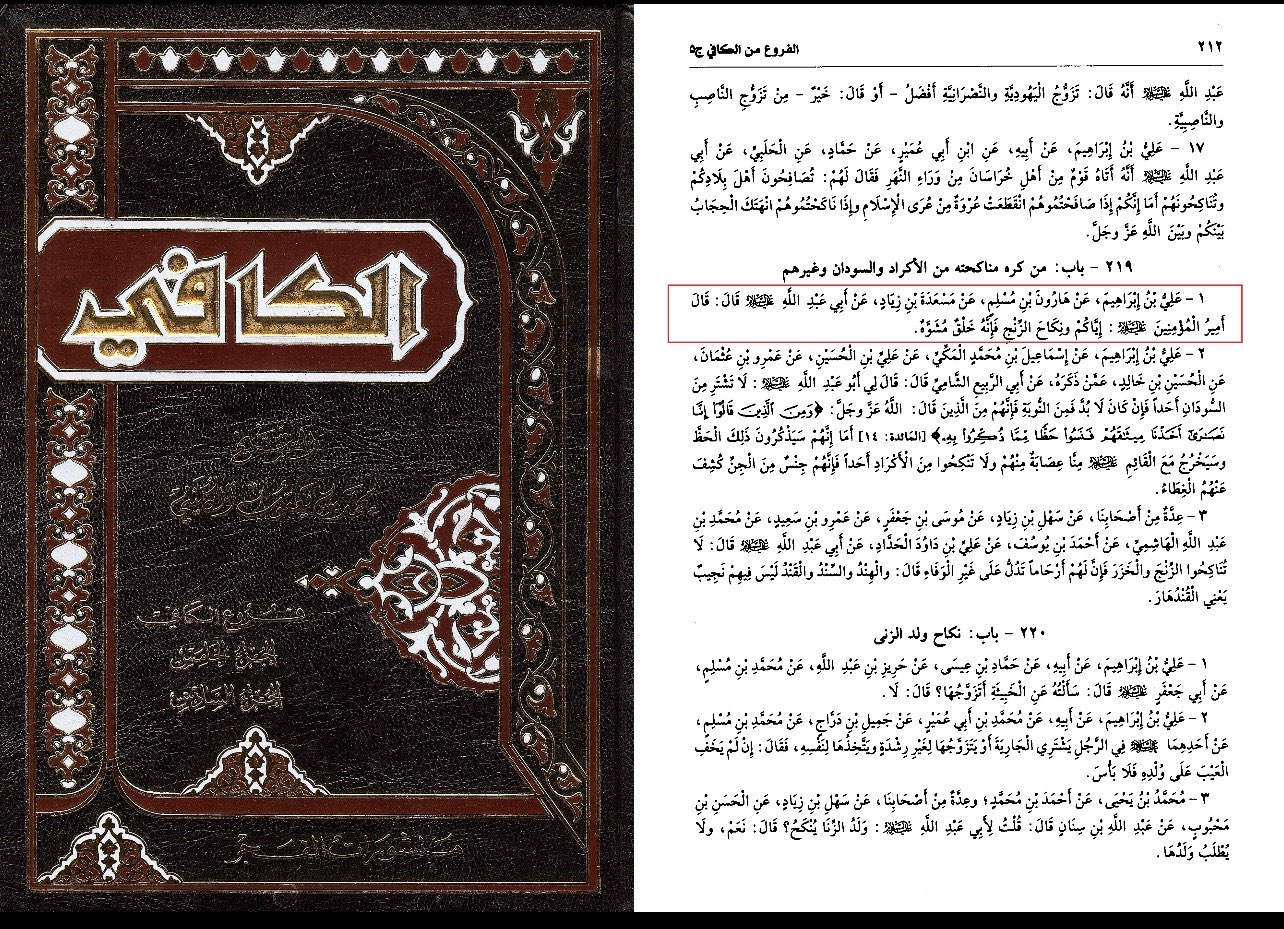 الكافي
فروع الكافي
الجزء الخامس
الجزء السادس
منشورات الفجر
٢١٢
الفروع من الكافي ج٥
عَبْدِ اللَّهِ عليه السلام أَنَّهُ قَالَ: تَزَوُّجُ الْيَهُودِيَّةِ والنَّصْرَانِيَّةِ أَفْضَلُ – أَوْ قَالَ: خَيْرٌ – مِنْ تَزَوُّجِ النَّاصِبِ
والنَّاصِبِيَّةِ.
١٧ – عَلِيُّ بْنُ إِبْرَاهِيمَ، عَنْ أَبِيهِ، عَنِ ابْنِ أَبِي عُمَيْرٍ، عَنْ حَمَّادٍ، عَنِ الْحَلَبِيِّ، عَنْ أَبِي
عَبْدِ اللَّهِ عليه السلام أَنَّهُ أَتَاهُ قَوْمٌ مِنْ أَهْلِ خُرَاسَانَ مِنْ وَرَاءِ النَّهَرِ فَقَالَ لَهُمْ: تُصَافِحُونَ أَهْلَ بِلَادِكُمْ
وتُنَاكِحُونَهُمْ أَمَا إِنَّكُمْ إِذَا صَافَحْتُمُوهُمْ انْقَطَعَتْ عُرْوَةٌ مِنْ عُرَى الْإِسْلَامِ وإِذَا نَاكَحْتُمُوهُمْ انْهَتَكَ الْحِجَابُ
بَيْنَكُمْ وبَيْنَ اللَّهِ عَزَّ وجَلَّ.
٢١٩ – باب: من كره مناكحته من الأكراد والسودان وغيرهم
١ – عَلِيُّ بْنُ إِبْرَاهِيمَ، عَنْ هَارُونَ بْنِ مُسْلِمٍ، عَنْ مَسْعَدَةَ بْنِ زِيَادٍ، عَنْ أَبِي عَبْدِ اللَّهِ عليه السلام قَالَ: قَالَ
أَمِيرُ الْمُؤْمِنِينَ عليه السلام: إِيَّاكُمْ ونِكَاحَ الزِّنْجِ فَإِنَّهُ خَلْقٌ مُشَوَّهٌ.
٢ – عَلِيُّ بْنُ إِبْرَاهِيمَ، عَنْ إِسْمَاعِيلَ بْنِ مُحَمَّدٍ الْمَكِّيِّ، عَنْ عَلِيِّ بْنِ الْحُسَيْنِ، عَنْ عَمْرِو بْنِ عُثْمَانَ،
عَنِ الْحُسَيْنِ بْنِ خَالِدٍ، عَمَّنْ ذَكَرَهُ، عَنْ أَبِي الرَّبِيعِ الشَّامِيِّ قَالَ: قَالَ لِي أَبُو عَبْدِ اللَّهِ عليه السلام: لَا تَشْتَرِ مِنَ
السُّودَانِ أَحَداً فَإِنْ كَانَ لَا بُدَّ فَمِنَ النُّوبَةِ فَإِنَّهُمْ مِنَ الَّذِينَ قَالَ: اللَّهُ عَزَّ وجَلَّ: ﴿وَمِنَ الَّذِينَ قَالُوا إِنَّا
نَصَارَى أَخَذْنَا مِيثَاقَهُمْ فَنَسُوا حَظًّا مِمَّا ذُكِّرُوا بِهِ﴾ [المائدة: ١٤] أَمَا إِنَّهُمْ سَيَذْكُرُونَ ذَلِكَ الْحَظَّ
وسَيَخْرُجُ مَعَ الْقَائِمِ عليه السلام مِنَّا عِصَابَةٌ مِنْهُمْ ولَا تَنْكِحُوا مِنَ الْأَكْرَادِ أَحَداً فَإِنَّهُمْ جِنْسٌ مِنَ الْجِنِّ كُشِفَ
عَنْهُمُ الْغِطَاءُ.
٣ – عِدَّةٌ مِنْ أَصْحَابِنَا، عَنْ سَهْلِ بْنِ زِيَادٍ، عَنْ مُوسَى بْنِ جَعْفَرٍ، عَنْ عَمْرِو بْنِ سَعِيدٍ، عَنْ مُحَمَّدِ بْنِ
عَبْدِ اللَّهِ الْهَاشِمِيِّ، عَنْ أَحْمَدَ بْنِ يُوسُفَ، عَنْ عَلِيِّ بْنِ دَاوُدَ الْحَدَّادِ، عَنْ أَبِي عَبْدِ اللَّهِ عليه السلام قَالَ: لَا
تُنَاكِحُوا الزِّنْجَ والْخَزَرَ فَإِنَّ لَهُمْ أَرْحَاماً تَدُلُّ عَلَى غَيْرِ الْوَفَاءِ قَالَ: والْهِنْدُ والسِّنْدُ والْقَنْدُ لَيْسَ فِيهِمْ نَجِيبٌ
يَعْنِي الْقُنْدُهَارَ.
٢٢٠ – باب: نكاح ولد الزنى
١ – عَلِيُّ بْنُ إِبْرَاهِيمَ، عَنْ أَبِيهِ، عَنْ حَمَّادِ بْنِ عِيسَى، عَنْ حَرِيزِ بْنِ عَبْدِ اللَّهِ، عَنْ مُحَمَّدِ بْنِ مُسْلِمٍ،
عَنْ أَبِي جَعْفَرٍ عليه السلام قَالَ: سَأَلْتُهُ عَنِ الْخَبِيثَةِ أَتَزَوَّجُهَا؟ قَالَ: لَا.
٢ – عَلِيُّ بْنُ إِبْرَاهِيمَ، عَنْ أَبِيهِ، عَنْ مُحَمَّدِ بْنِ أَبِي عُمَيْرٍ، عَنْ جَمِيلِ بْنِ دَرَّاجٍ، عَنْ مُحَمَّدِ بْنِ مُسْلِمٍ،
عَنْ أَحَدِهِمَا عليه السلام فِي الرَّجُلِ يَشْتَرِي الْجَارِيَةَ أَوْ يَتَزَوَّجُهَا لِغَيْرِ رِشْدَةٍ ويَتَّخِذُهَا لِنَفْسِهِ، فَقَالَ: إِنْ لَمْ يَخَفِ
الْعَيْبَ عَلَى وُلْدِهِ فَلَا بَأْسَ.
٣ – مُحَمَّدُ بْنُ يَحْيَى، عَنْ أَحْمَدَ بْنِ مُحَمَّدٍ؛ وعِدَّةٌ مِنْ أَصْحَابِنَا، عَنْ سَهْلِ بْنِ زِيَادٍ، عَنِ الْحَسَنِ بْنِ
مَحْبُوبٍ، عَنْ عَبْدِ اللَّهِ بْنِ سِنَانٍ قَالَ: قُلْتُ لِأَبِي عَبْدِ اللَّهِ عليه السلام: وَلَدُ الزِّنَا يُنْكَحُ؟ قَالَ: نَعَمْ، ولَا
يُطْلَبُ وَلَدُهَا.